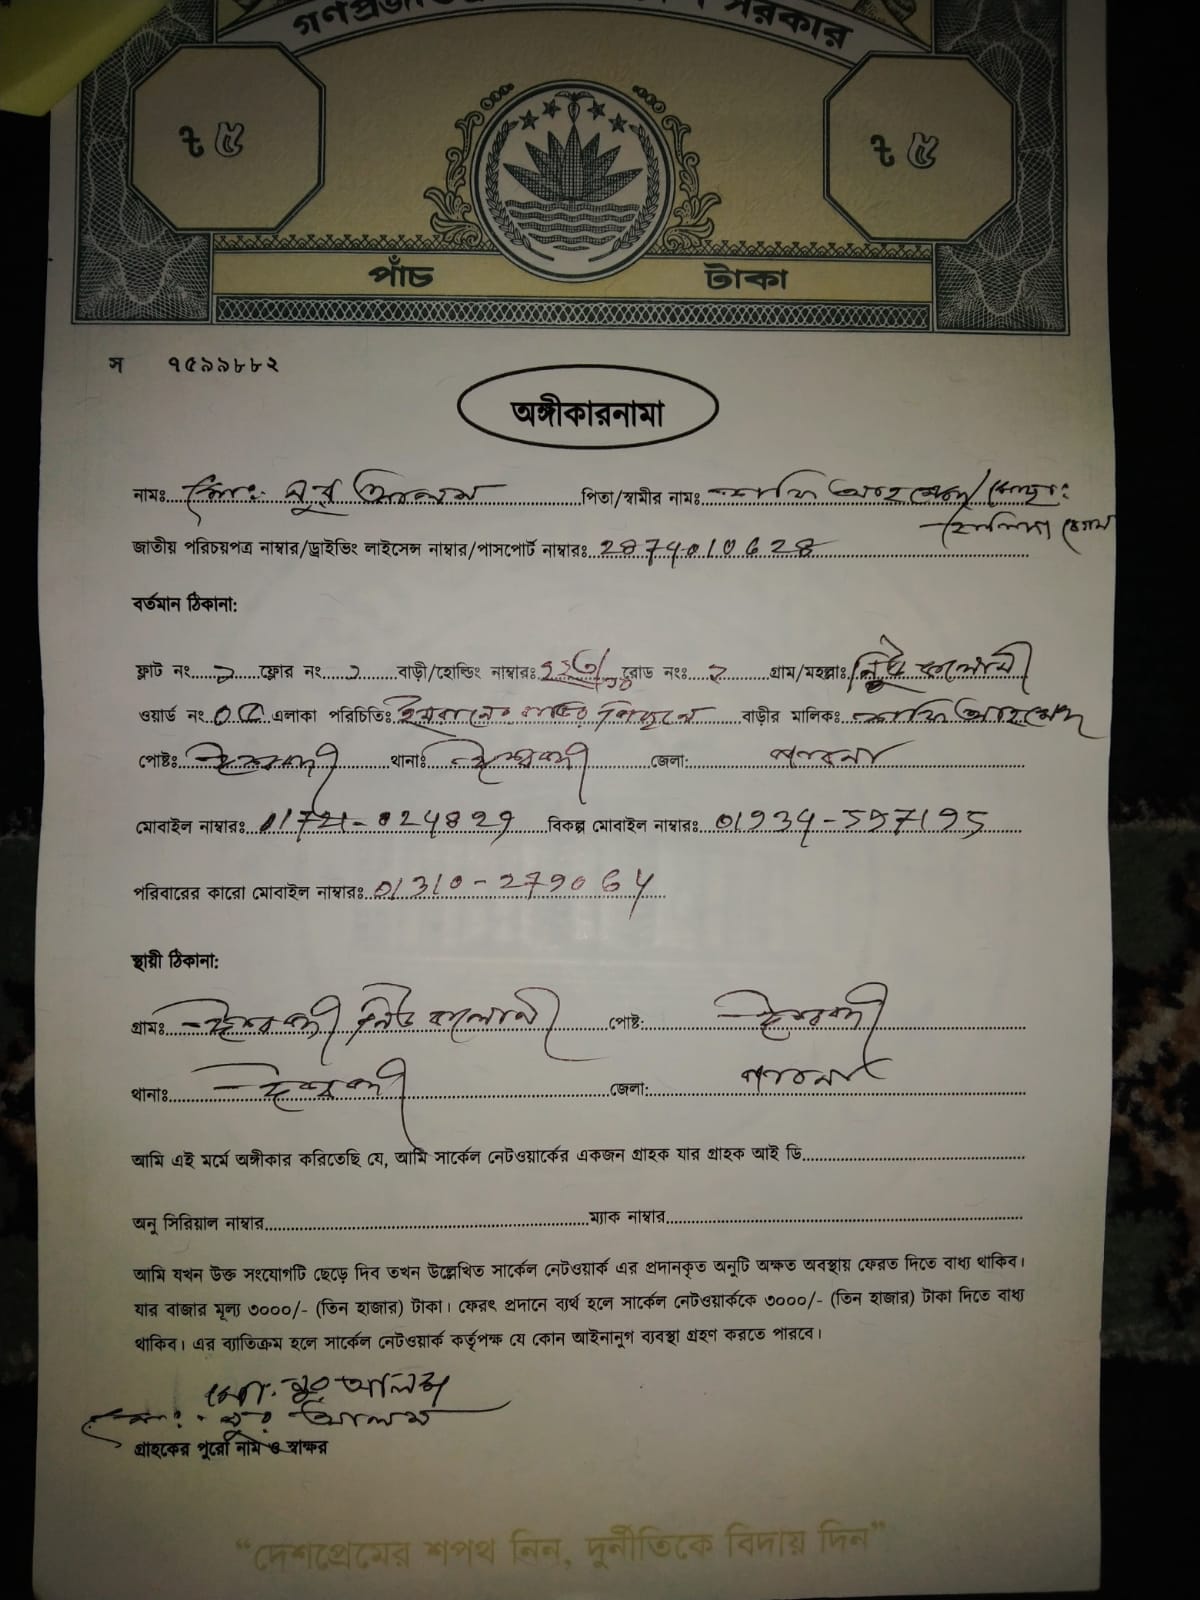 সরকার
৳ ৫ ৳ ৫
পাঁচ টাকা
স ৭৫৯৯৮৮২
অঙ্গীকারনামা
নামঃ মোঃ নুর আলম পিতা/স্বামীর নামঃ শাফি আহমেদ/মোছাঃ
বেগম
জাতীয় পরিচয়পত্র নাম্বার/ড্রাইভিং লাইসেন্স নাম্বার/পাসপোর্ট নাম্বারঃ 2874010628
বর্তমান ঠিকানা:
ফ্লাট নং ফ্লোর নং বাড়ী/হোল্ডিং নাম্বারঃ রোড নংঃ গ্রাম/মহল্লাঃ নিউ কলোনী
ওয়ার্ড নং এলাকা পরিচিতিঃ বাড়ীর মালিকঃ শাফি আহমেদ
পোষ্টঃ ঈশ্বরদী থানাঃ ঈশ্বরদী জেলা: পাবনা
মোবাইল নাম্বারঃ 01721-024829 বিকল্প মোবাইল নাম্বারঃ
পরিবারের কারো মোবাইল নাম্বারঃ 01310-279064
স্থায়ী ঠিকানা:
গ্রামঃ ঈশ্বরদী নিউ কলোনী পোষ্ট: ঈশ্বরদী
থানাঃ ঈশ্বরদী জেলা: পাবনা
আমি এই মর্মে অঙ্গীকার করিতেছি যে, আমি সার্কেল নেটওয়ার্কের একজন গ্রাহক যার গ্রাহক আই ডি
অনু সিরিয়াল নাম্বার ম্যাক নাম্বার
আমি যখন উক্ত সংযোগটি ছেড়ে দিব তখন উল্লেখিত সার্কেল নেটওয়ার্ক এর প্রদানকৃত অনুটি অক্ষত অবস্থায় ফেরত দিতে বাধ্য থাকিব।
যার বাজার মূল্য ৩০০০/- (তিন হাজার) টাকা। ফেরৎ প্রদানে ব্যর্থ হলে সার্কেল নেটওয়ার্ককে ৩০০০/- (তিন হাজার) টাকা দিতে বাধ্য
থাকিব। এর ব্যাতিক্রম হলে সার্কেল নেটওয়ার্ক কর্তৃপক্ষ যে কোন আইনানুগ ব্যবস্থা গ্রহণ করতে পারবে।
মো. নুর আলম
মোঃ নুর আলম
গ্রাহকের পুরো নাম ও স্বাক্ষর
"দেশপ্রেমের শপথ নিন, দুর্নীতিকে বিদায় দিন"